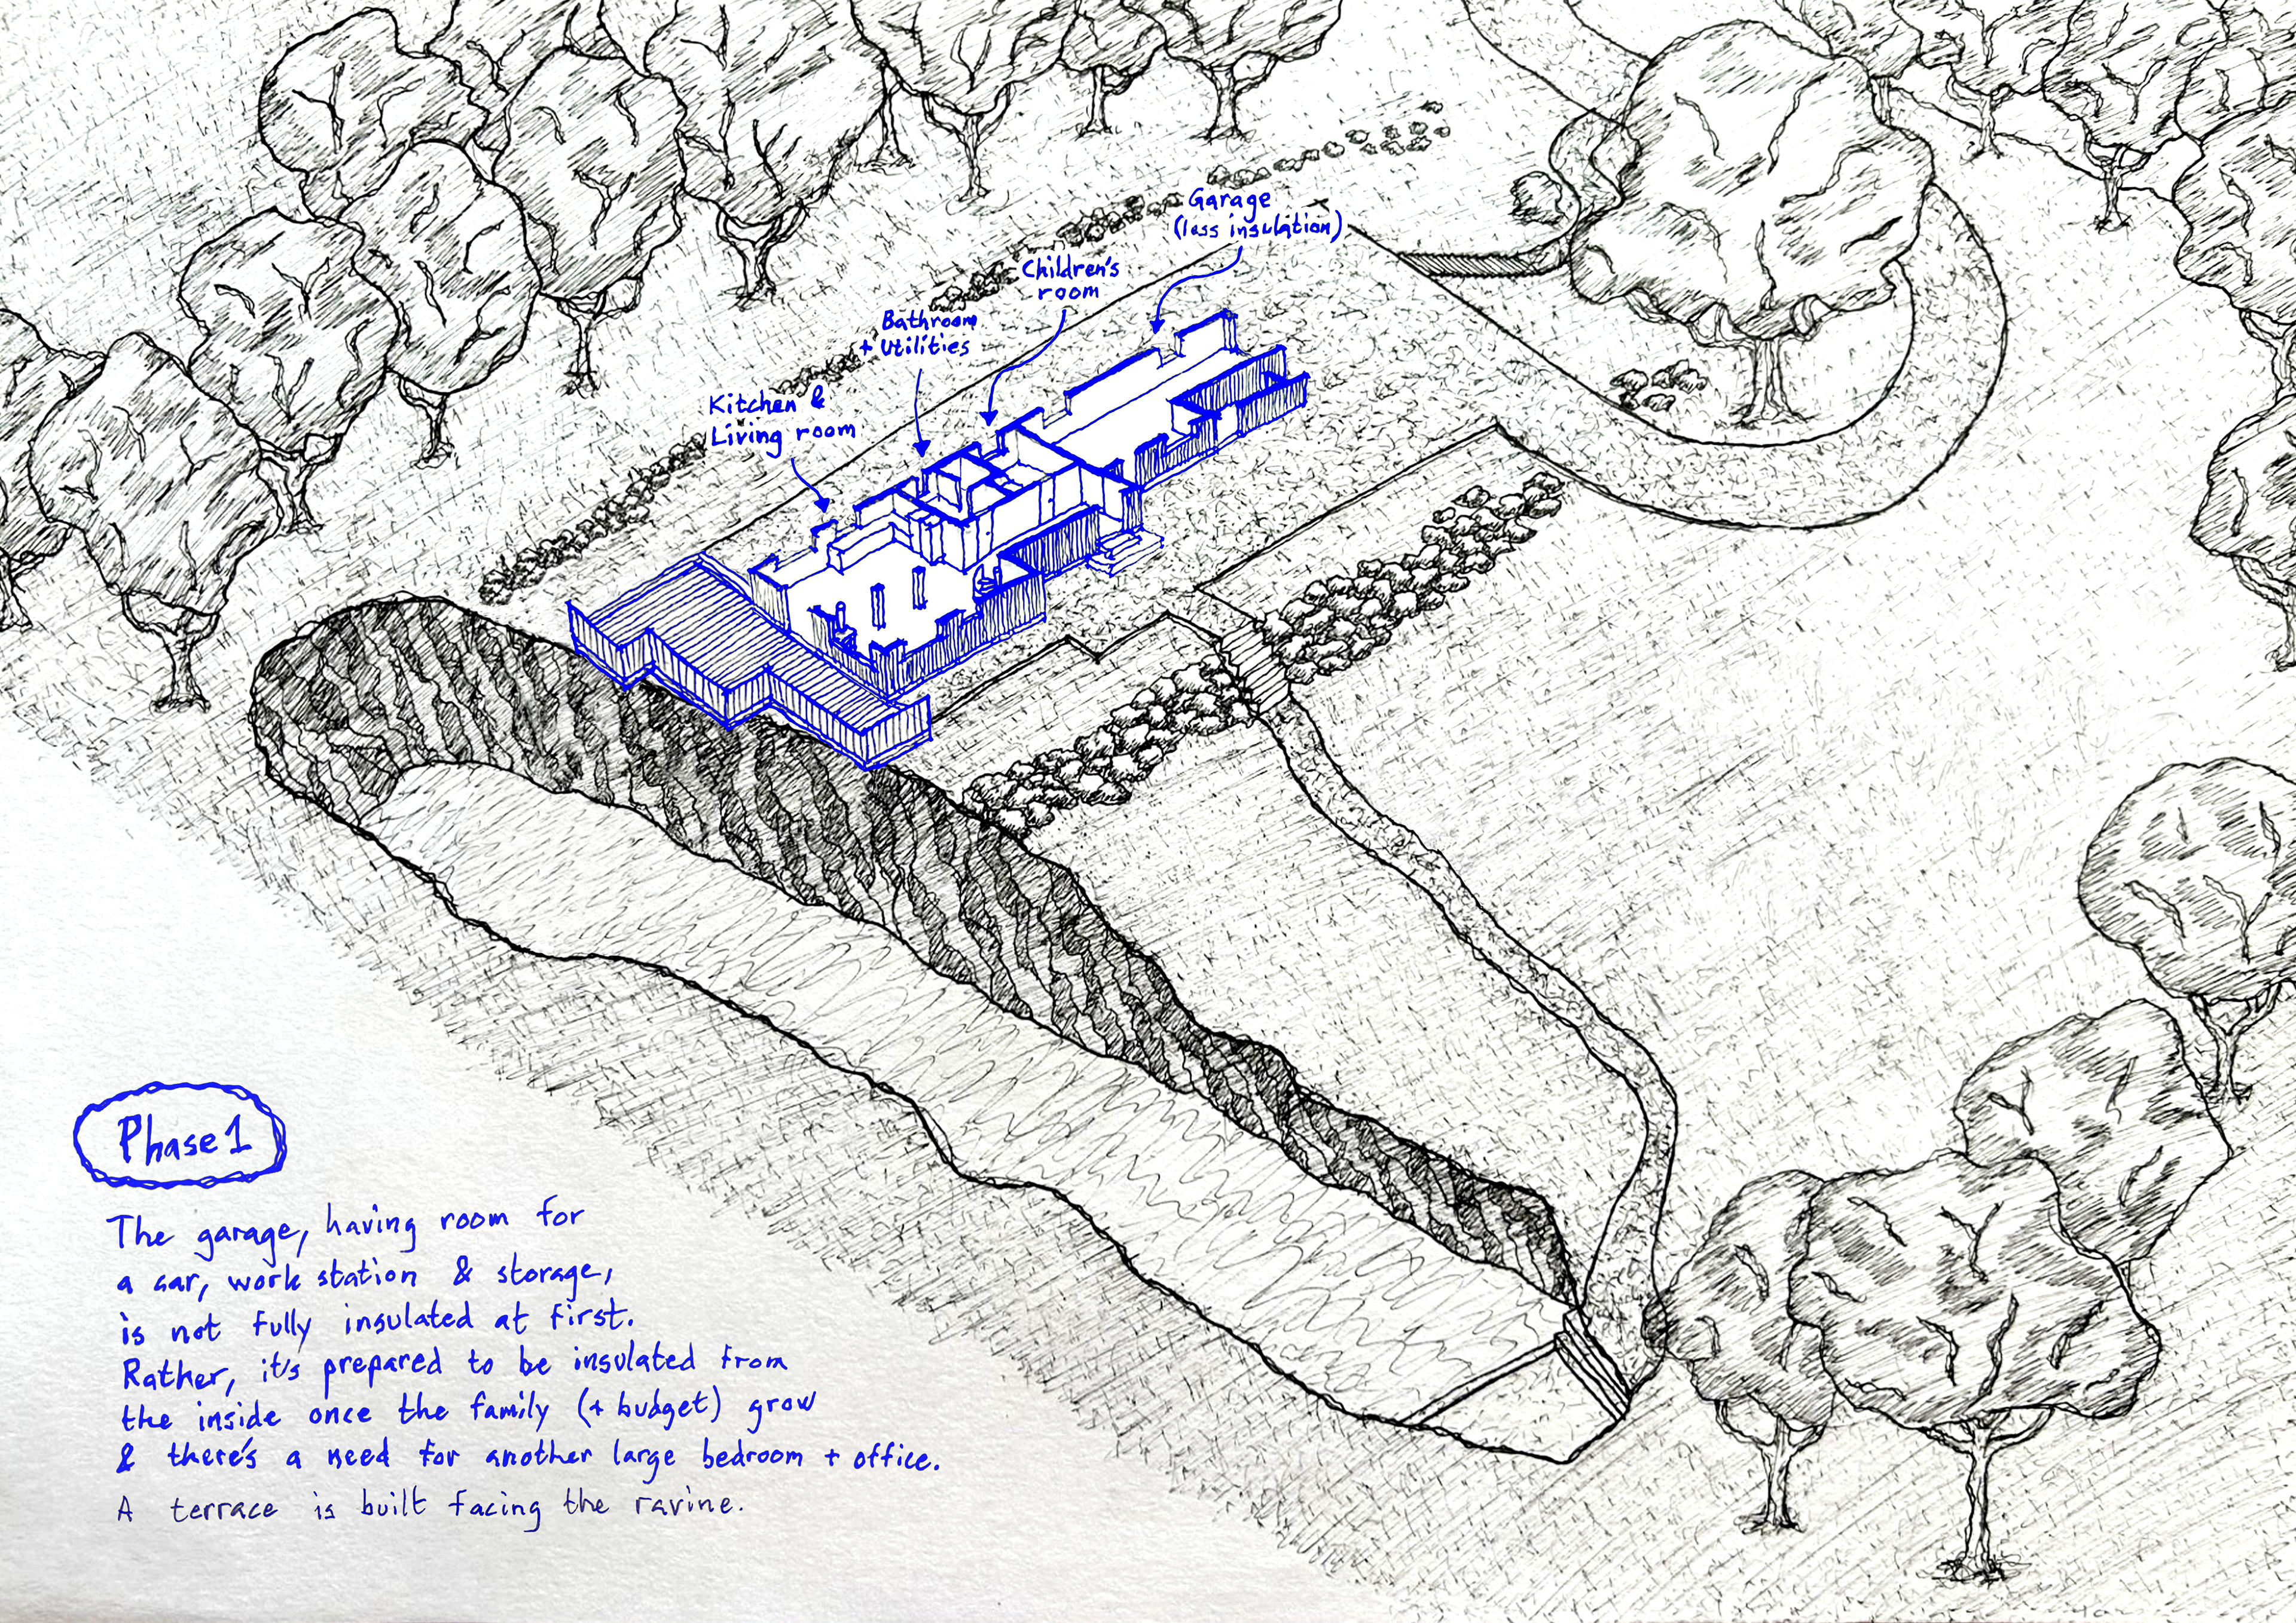 Garage
(less insulation)
Children's
room
Bathroom
+ Utilities
Kitchen &
Living room
Phase 1
The garage, having room for
a car, work station & storage,
is not fully insulated at first.
Rather, it's prepared to be insulated from
the inside once the family (+ budget) grow
& there's a need for another large bedroom + office.
A terrace is built facing the ravine.